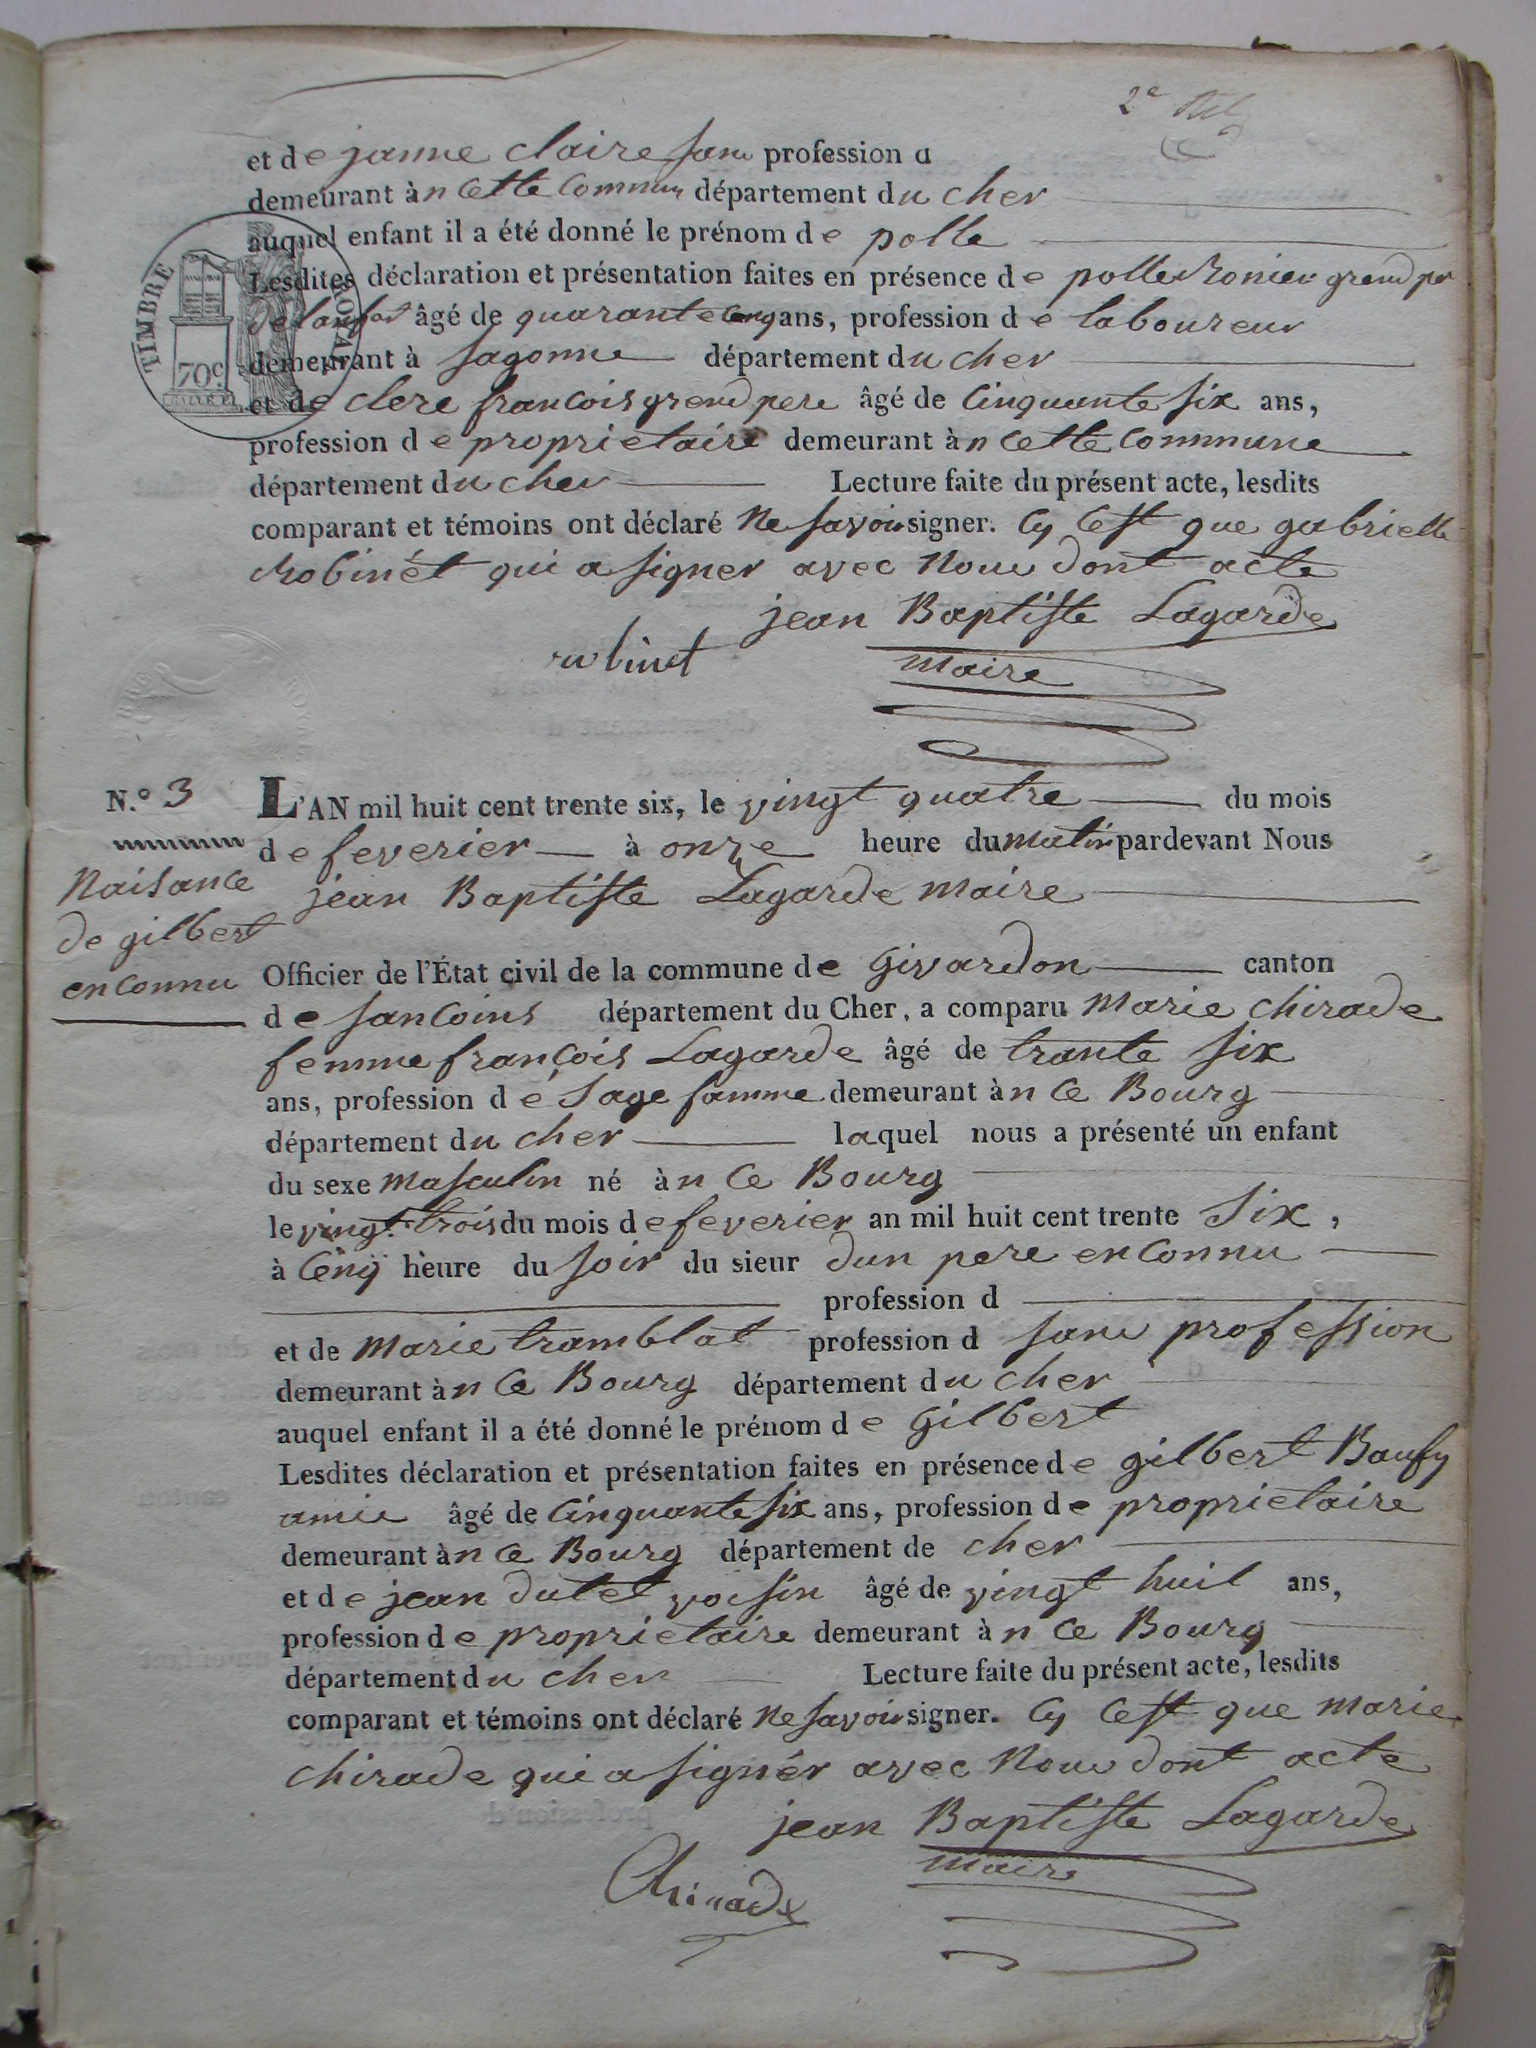 2e
et de janne claire sans profession d
demeurant àn cette commun département du cher
auquel enfant il a été donné le prénom de polle
Lesdites déclaration et présentation faites en présence de polle Ronien grend per
de lanfat âgé de quarante cenq ans, profession de laboureur
demeurant à sagonne département du cher
et de clere francois grend pere âgé de Cinquante six ans,
profession de proprietaire demeurant àn cette commune
département du cher Lecture faite du présent acte, lesdits
comparant et témoins ont déclaré ne savoir signer. Cy Cest que gabrielle
Robinet qui a signer avec Nous dont acte
jean Baptiste Lagarde
robinet maire
TIMBRE ROYAL
70c
N.º 3 L'AN mil huit cent trente six, le vingt quatre du mois
de feverier à onze heure du matin pardevant Nous
Naisance
de gilbert
enconnu
jean Baptiste Lagarde maire
Officier de l'État civil de la commune de Givardon canton
de sancoins département du Cher, a comparu marie chirade
femme francois Lagarde âgé de trante six
ans, profession de sage famme demeurant àn ce Bourg
département du cher laquel nous a présenté un enfant
du sexe masculin né àn ce Bourg
le vingt trois du mois de feverier an mil huit cent trente six,
à Cenq heure du soir du sieur dun pere enconnu
profession d
et de marie tramblat profession d sans profession
demeurant àn ce Bourg département du cher
auquel enfant il a été donné le prénom de gilbert
Lesdites déclaration et présentation faites en présence de gilbert Baufy
amie âgé de Cinquante six ans, profession de proprietaire
demeurant àn ce Bourg département de cher
et de jean dutet voisin âgé de vingt huit ans,
profession de proprietaire demeurant àn ce Bourg
département du cher Lecture faite du présent acte, lesdits
comparant et témoins ont déclaré ne savoir signer. Cy Cest que marie
chirade qui a signér avec Nous dont acte
jean Baptiste Lagarde
maire
Chirade